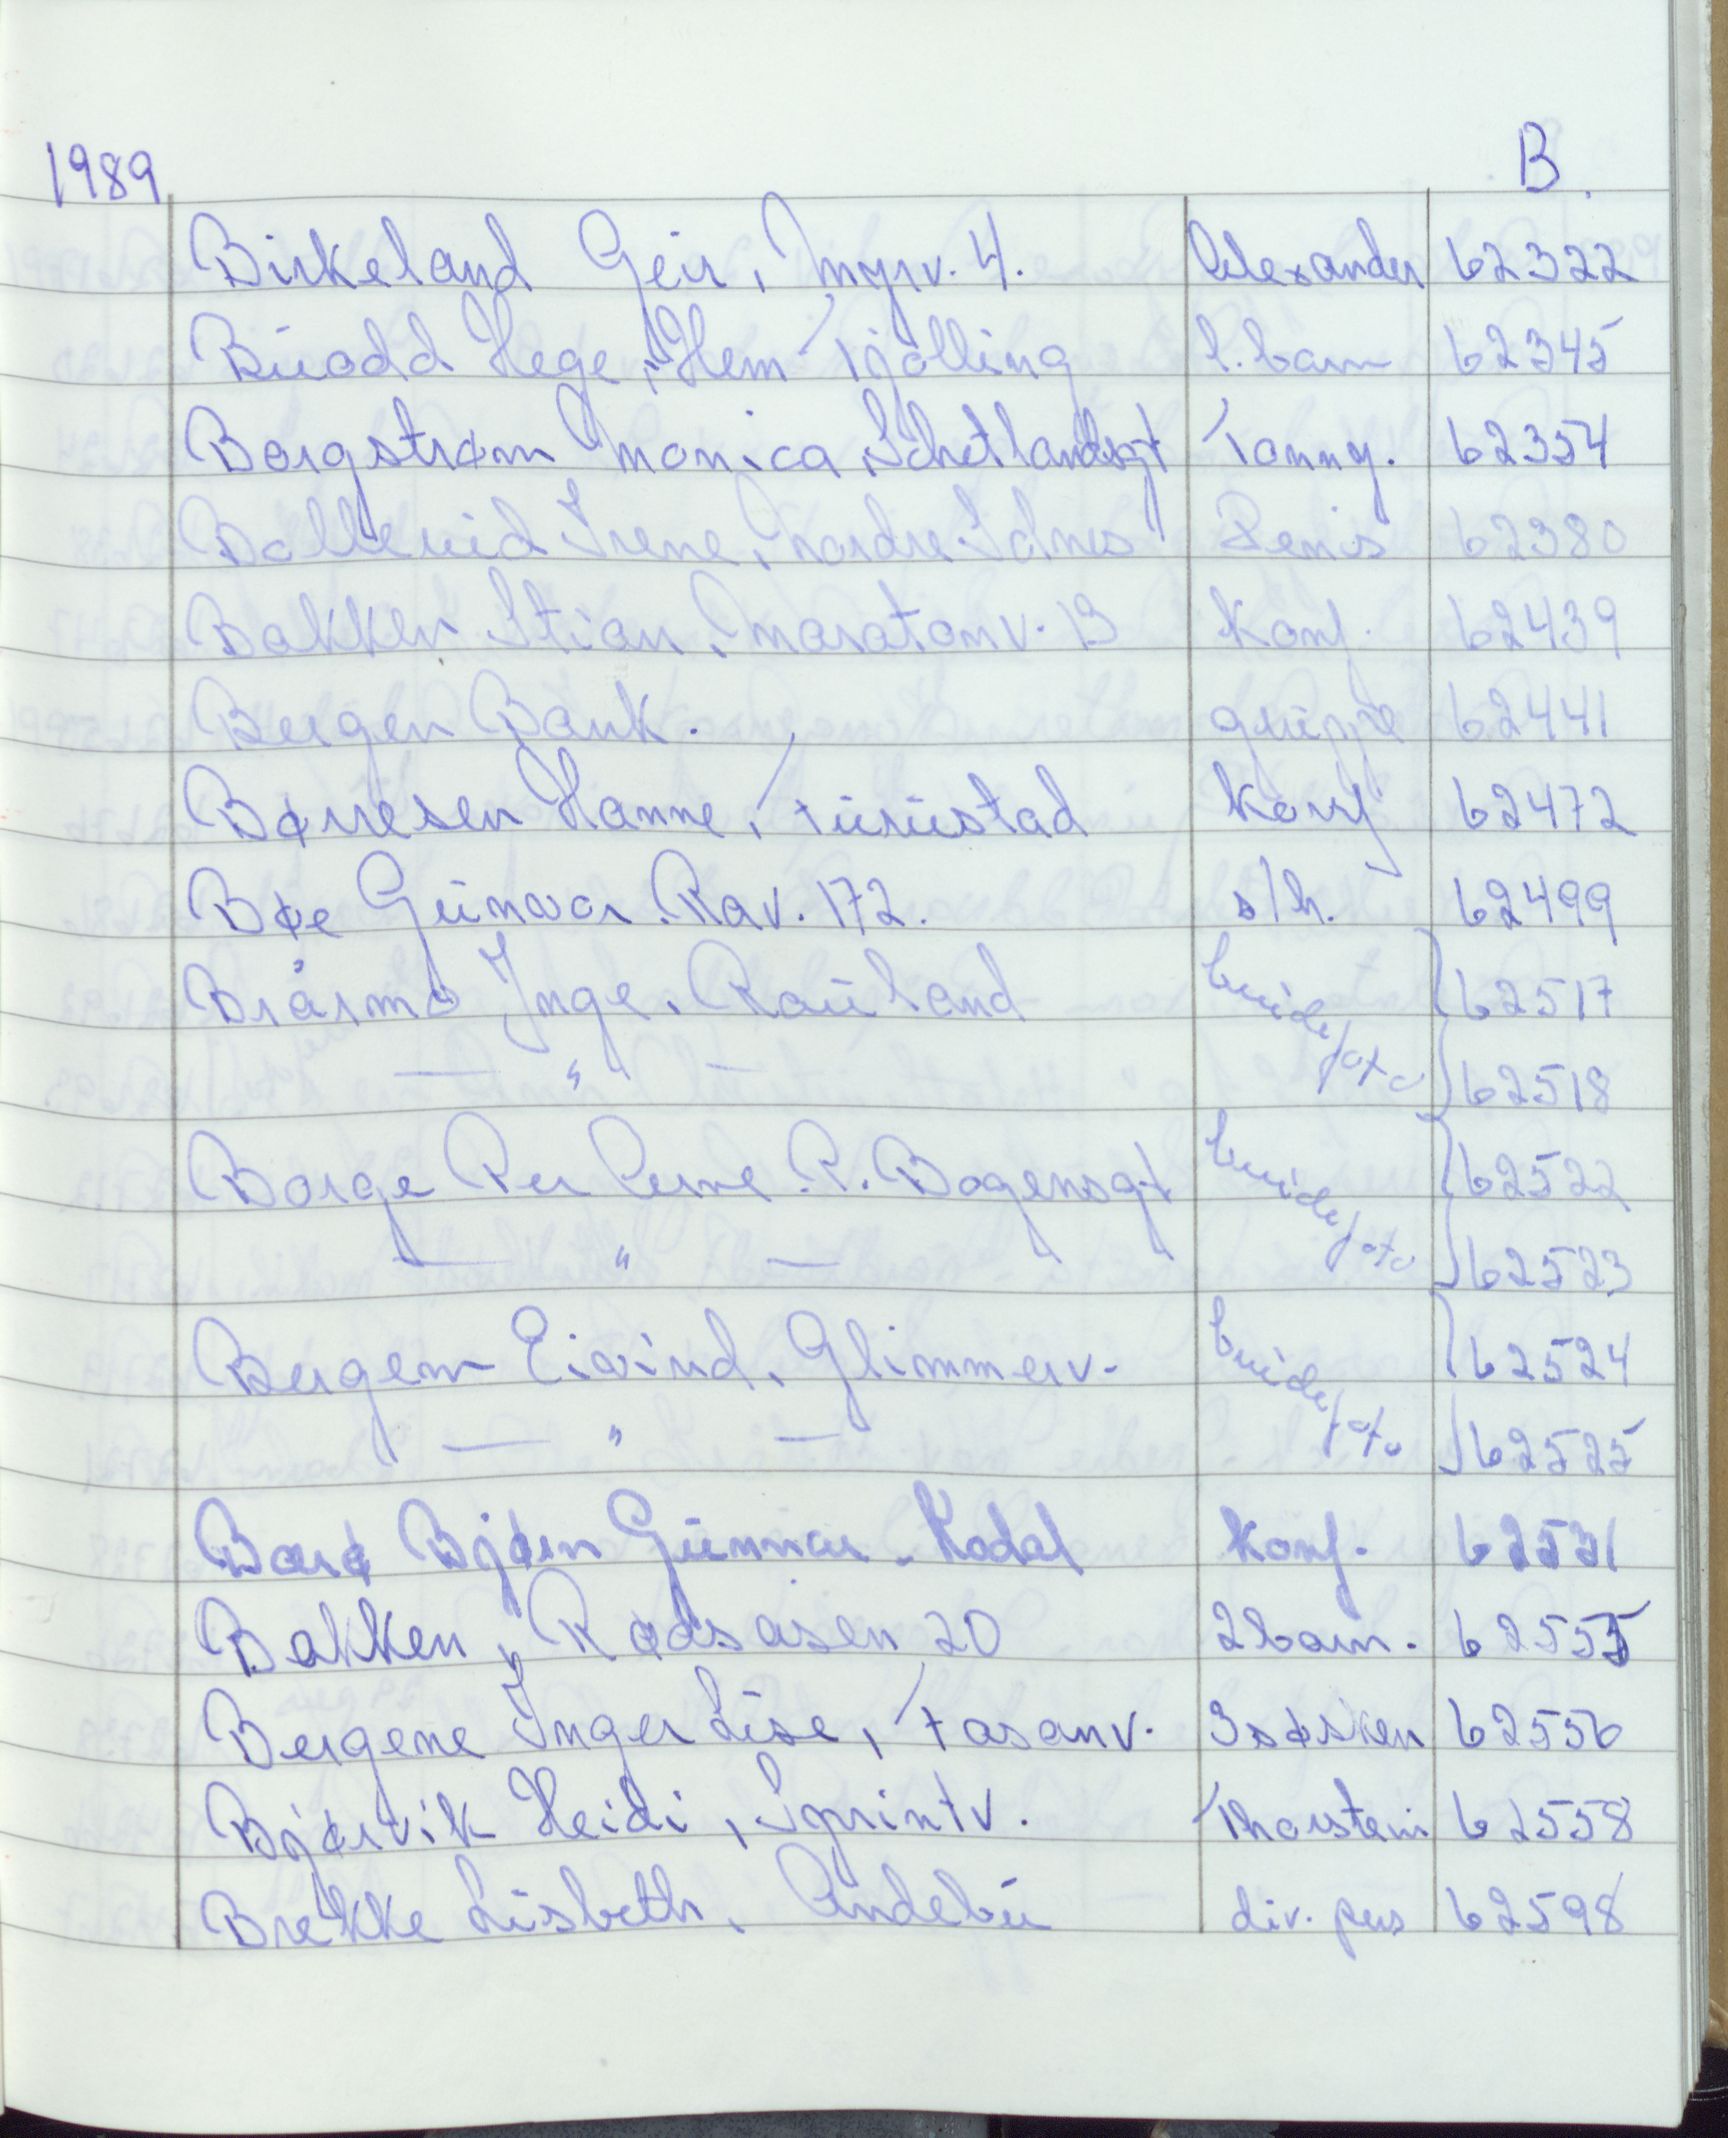 1989 B.
Birkeland Geir, Myrv. 4. Alexander 62322
Buodd Hege, Hem Tjølling 1. barn 62345
Borgstrøm Monica, Schetlandsgt Tonny. 62354
Irene, nordre Denis 62380
Bakken Stian, Maratonv. 13 Konf. 62439
Bergen Bank. gruppe 62441
Børresen Hanne, Furustad Konf 62472
Bøe Gunvor. Rav. 172. s/h. 62499
Brårmo Inge, Rauland brudefoto 62517
— " — 62518
Borge Per Arne. P. Bogensgt brudefoto 62522
— " — 62523
Bergem Eivind, Glimmerv. brudefoto 62524
— " — 62525
Bjørn Gunnar. Kodal Konf. 62531
Bakken, Rødsåsen 20 2 barn. 62555
Bergene Inger Lise, Fasanv. 3 søsken 62556
Bjørvik Heidi, Sprintv. Thorstein 62558
Brekke Lisbeth, Andebu div. pas 62598